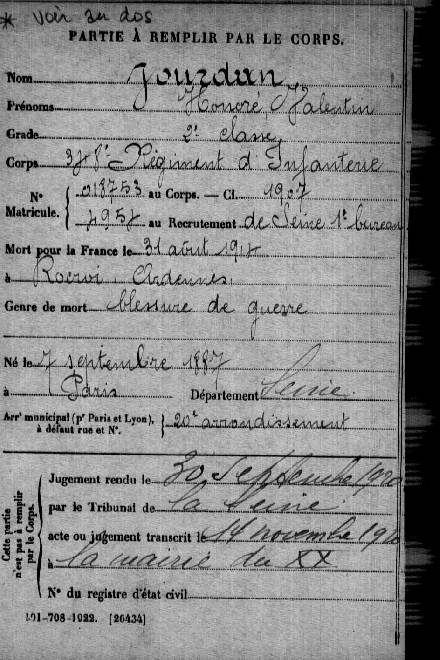 * voir au dos
PARTIE À REMPLIR PAR LE CORPS.
Nom Jourdan
Prénoms Honoré Valentin
Grade 2e classe
Corps 348e Régiment d'Infanterie
N° Matricule. 018753 au Corps. — Cl. 1907
4954 au Recrutement de Seine 1er bureau
Mort pour la France le 31 août 1914
à Rocroi Ardennes
Genre de mort blessure de guerre
Né le 7 septembre 1887
à Paris Département Seine
Arrt municipal (pr Paris et Lyon), à défaut rue et N°. 20e arrondissement
Cette partie n'est pas à remplir par le Corps.
Jugement rendu le 30 Septembre 1920
par le Tribunal de la Seine
acte ou jugement transcrit le 14 novembre 1920
à la mairie du XX
N° du registre d'état civil
101-708-1922. [26434]